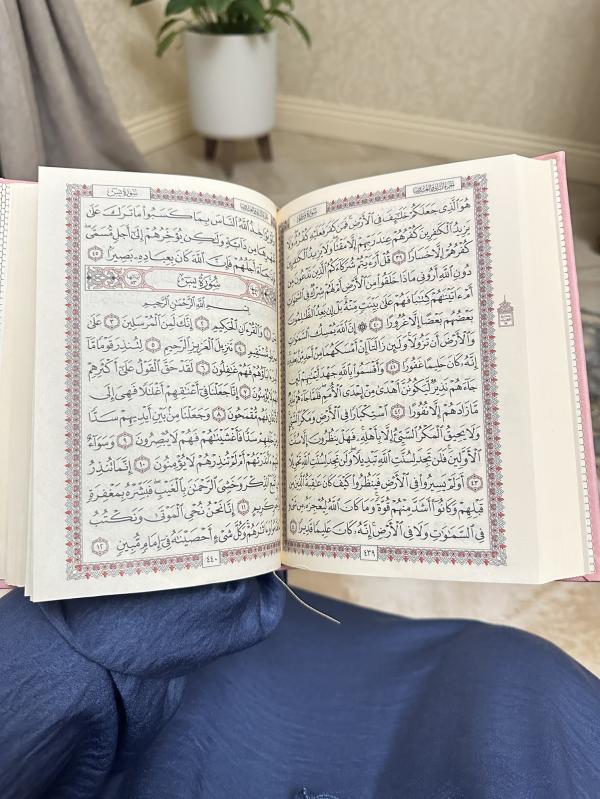 سُورَةُ فَاطِر
هُوَ الَّذِي جَعَلَكُمْ خَلَٰٓئِفَ فِي الْأَرْضِ فَمَن كَفَرَ فَعَلَيْهِ كُفْرُهُۥ وَلَا
يَزِيدُ الْكَٰفِرِينَ كُفْرُهُمْ عِندَ رَبِّهِمْ إِلَّا مَقْتًا وَلَا يَزِيدُ الْكَٰفِرِينَ
كُفْرُهُمْ إِلَّا خَسَارًا ٣٩ قُلْ أَرَءَيْتُمْ شُرَكَآءَكُمُ الَّذِينَ تَدْعُونَ مِن
دُونِ اللَّهِ أَرُونِي مَاذَا خَلَقُوا مِنَ الْأَرْضِ أَمْ لَهُمْ شِرْكٌ فِي السَّمَٰوَٰتِ
أَمْ ءَاتَيْنَٰهُمْ كِتَٰبًا فَهُمْ عَلَىٰ بَيِّنَتٍ مِّنْهُ بَلْ إِن يَعِدُ الظَّٰلِمُونَ
بَعْضُهُم بَعْضًا إِلَّا غُرُورًا ٤٠ ۞ إِنَّ اللَّهَ يُمْسِكُ السَّمَٰوَٰتِ
وَالْأَرْضَ أَن تَزُولَا وَلَئِن زَالَتَآ إِنْ أَمْسَكَهُمَا مِنْ أَحَدٍ مِّنۢ بَعْدِهِۦٓ
إِنَّهُۥ كَانَ حَلِيمًا غَفُورًا ٤١ وَأَقْسَمُوا بِاللَّهِ جَهْدَ أَيْمَٰنِهِمْ لَئِن
جَآءَهُمْ نَذِيرٌ لَّيَكُونُنَّ أَهْدَىٰ مِنْ إِحْدَى الْأُمَمِ فَلَمَّا جَآءَهُمْ نَذِيرٌ
مَّا زَادَهُمْ إِلَّا نُفُورًا ٤٢ اسْتِكْبَارًا فِي الْأَرْضِ وَمَكْرَ السَّيِّئِ
وَلَا يَحِيقُ الْمَكْرُ السَّيِّئُ إِلَّا بِأَهْلِهِۦ فَهَلْ يَنظُرُونَ إِلَّا سُنَّتَ
الْأَوَّلِينَ فَلَن تَجِدَ لِسُنَّتِ اللَّهِ تَبْدِيلًا وَلَن تَجِدَ لِسُنَّتِ اللَّهِ تَحْوِيلًا
٤٣ أَوَلَمْ يَسِيرُوا فِي الْأَرْضِ فَيَنظُرُوا كَيْفَ كَانَ عَٰقِبَةُ الَّذِينَ مِن
قَبْلِهِمْ وَكَانُوٓا أَشَدَّ مِنْهُمْ قُوَّةً وَمَا كَانَ اللَّهُ لِيُعْجِزَهُۥ مِن شَيْءٍ
فِي السَّمَٰوَٰتِ وَلَا فِي الْأَرْضِ إِنَّهُۥ كَانَ عَلِيمًا قَدِيرًا ٤٤
٤٣٩
سُورَةُ يسٓ
اللَّهُ النَّاسَ بِمَا كَسَبُوا مَا تَرَكَ عَلَىٰ
مِن دَآبَّةٍ وَلَٰكِن يُؤَخِّرُهُمْ إِلَىٰٓ أَجَلٍ مُّسَمًّى
جَآءَ أَجَلُهُمْ فَإِنَّ اللَّهَ كَانَ بِعِبَادِهِۦ بَصِيرًۢا ٤٥
سُورَةُ يسٓ
بِسْمِ اللَّهِ الرَّحْمَٰنِ الرَّحِيمِ
وَالْقُرْءَانِ الْحَكِيمِ ٢ إِنَّكَ لَمِنَ الْمُرْسَلِينَ ٣ عَلَىٰ
مُّسْتَقِيمٍ ٤ تَنزِيلَ الْعَزِيزِ الرَّحِيمِ ٥ لِتُنذِرَ قَوْمًا مَّآ
ءَابَآؤُهُمْ فَهُمْ غَٰفِلُونَ ٦ لَقَدْ حَقَّ الْقَوْلُ عَلَىٰٓ أَكْثَرِهِمْ
لَا يُؤْمِنُونَ ٧ إِنَّا جَعَلْنَا فِيٓ أَعْنَٰقِهِمْ أَغْلَٰلًا فَهِيَ إِلَى
فَهُم مُّقْمَحُونَ ٨ وَجَعَلْنَا مِنۢ بَيْنِ أَيْدِيهِمْ سَدًّا
خَلْفِهِمْ سَدًّا فَأَغْشَيْنَٰهُمْ فَهُمْ لَا يُبْصِرُونَ ٩ وَسَوَآءٌ
ءَأَنذَرْتَهُمْ أَمْ لَمْ تُنذِرْهُمْ لَا يُؤْمِنُونَ ١٠ إِنَّمَا تُنذِرُ
الذِّكْرَ وَخَشِيَ الرَّحْمَٰنَ بِالْغَيْبِ فَبَشِّرْهُ بِمَغْفِرَةٍ
كَرِيمٍ ١١ إِنَّا نَحْنُ نُحْيِ الْمَوْتَىٰ وَنَكْتُبُ
وَءَاثَٰرَهُمْ وَكُلَّ شَيْءٍ أَحْصَيْنَٰهُ فِيٓ إِمَامٍ مُّبِينٍ ١٢
٤٤٠